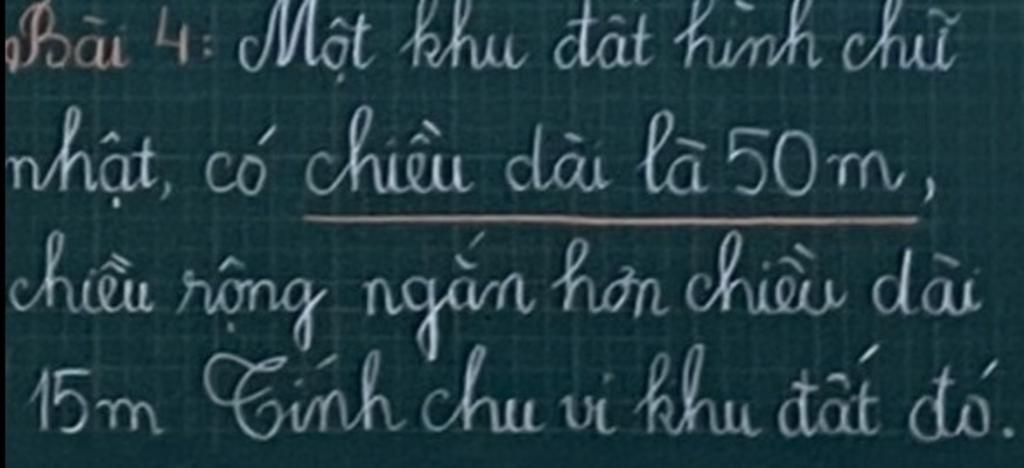 Bài 4: Một khu đất hình chữ
nhật, có chiều dài là 50m,
chiều rộng ngắn hơn chiều dài
15m Tính chu vi khu đất đó.